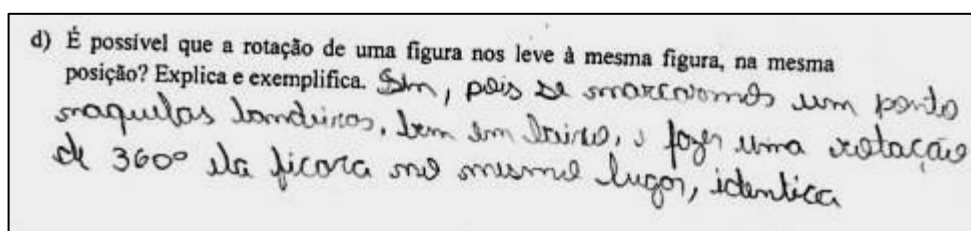 d) É possível que a rotação de uma figura nos leve à mesma figura, na mesma
posição? Explica e exemplifica. Sim, pois se marcarmos um ponto
naquelas bandeiras, bem em baixo, e fazer uma rotação
de 360° ela ficara no mesmo lugar, identica